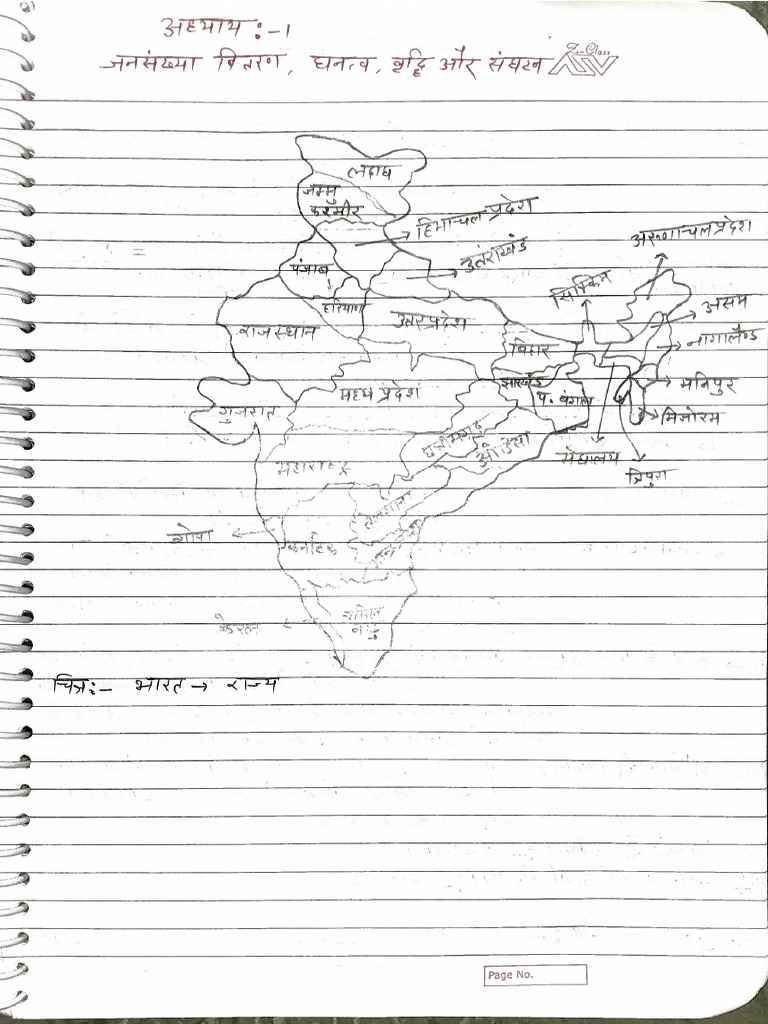 अध्याय :- 1
जनसंख्या वितरण, घनत्व, वृद्धि और संघटन
लद्दाख
जम्मु
कश्मीर
हिमाचल प्रदेश
अरूणाचल प्रदेश
पंजाब
उत्तराखंड
सिक्किम
हरियाणा
असम
राजस्थान
उत्तरप्रदेश
बिहार
नागालैण्ड
झारखंड
मनिपुर
गुजरात
मध्य प्रदेश
प. बंगाल
मिजोरम
छत्तीसगढ़
ओडिशा
मेघालय
महाराष्ट्र
त्रिपुरा
तेलंगाना
गोवा
कर्नाटक
केरल
तमिल
नाडु
चित्र:- भारत → राज्य
Page No.